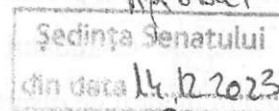 Ședința Senatului
din data 14.12.2023